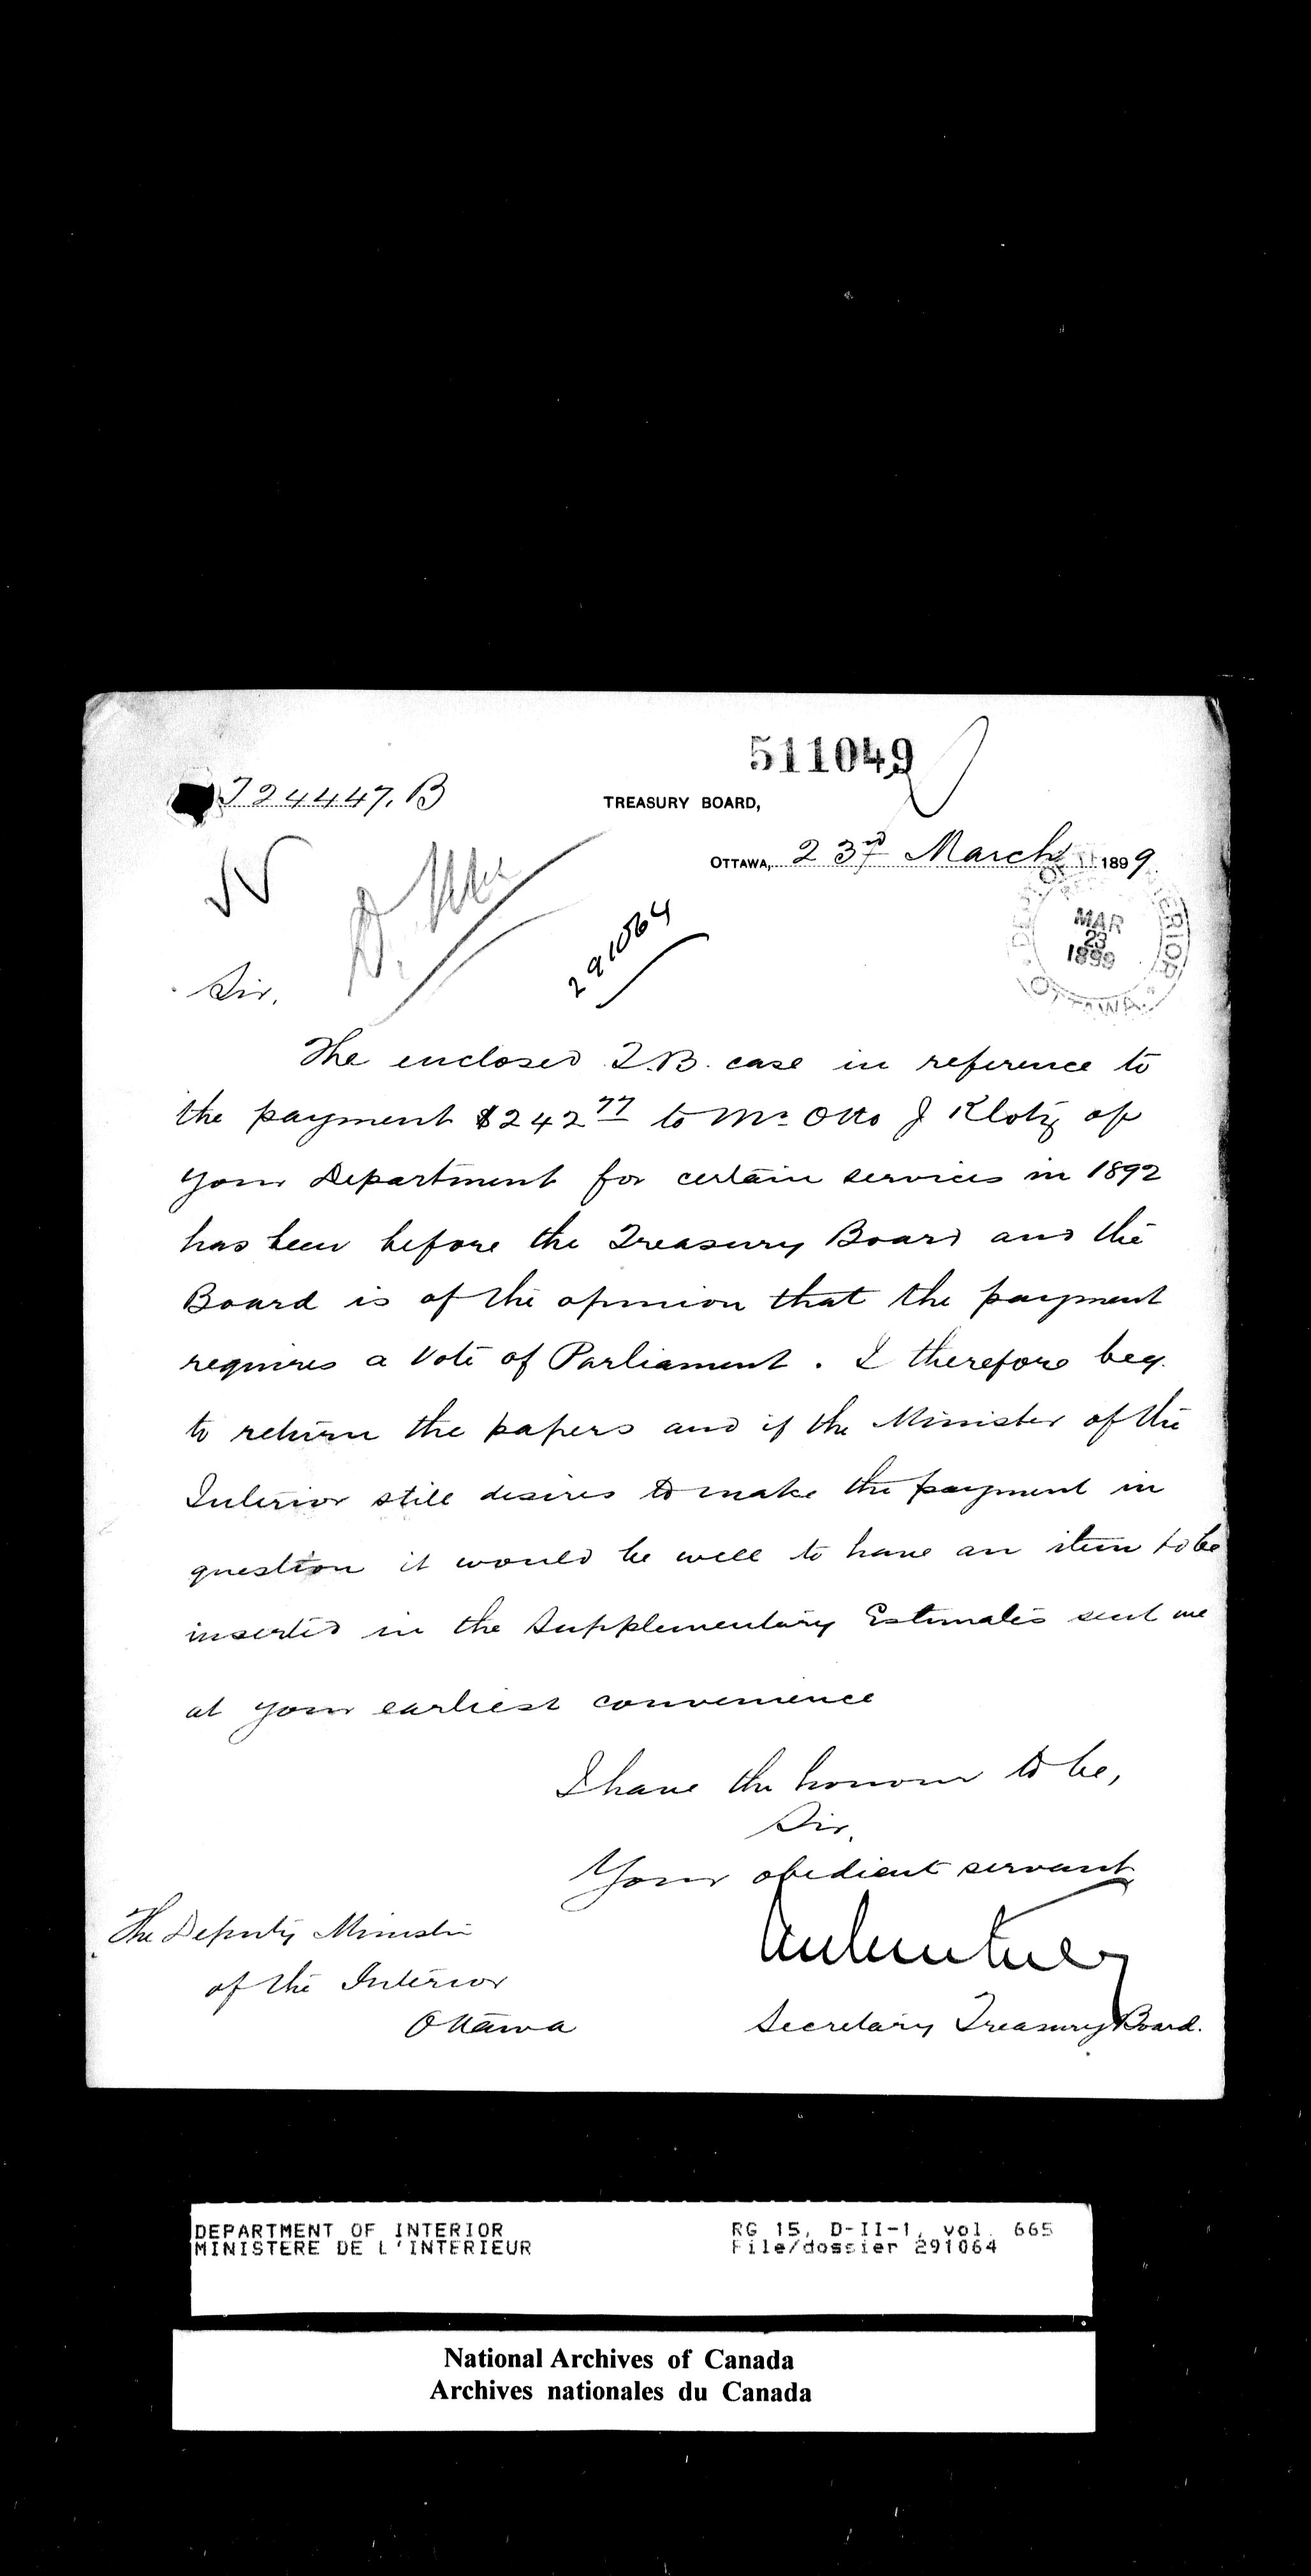 511049
T24447.B
TREASURY BOARD,
OTTAWA, 23rd March 1899.
DEPT OF INTERIOR
MAR
23
1899
OTTAWA
291064
Sir,
The enclosed T.B. case in reference to
the payment $242 77 to Mr Otto J Klotz of
your Department for certain services in 1892
has been before the Treasury Board and the
Board is of the opinion that the payment
requires a vote of Parliament. I therefore beg
to return the papers and if the Minister of the
Interior still desires to make the payment in
question it would be well to have an item to be
inserted in the Supplementary Estimates sent me
at your earliest convenience
I have the honour to be,
Sir,
Your obedient servant
The Deputy Minister
of the Interior
Ottawa
Secretary Treasury Board.
DEPARTMENT OF INTERIOR
MINISTERE DE L'INTERIEUR
RG 15, D-II-1, vol. 665
File/dossier 291064
National Archives of Canada
Archives nationales du Canada